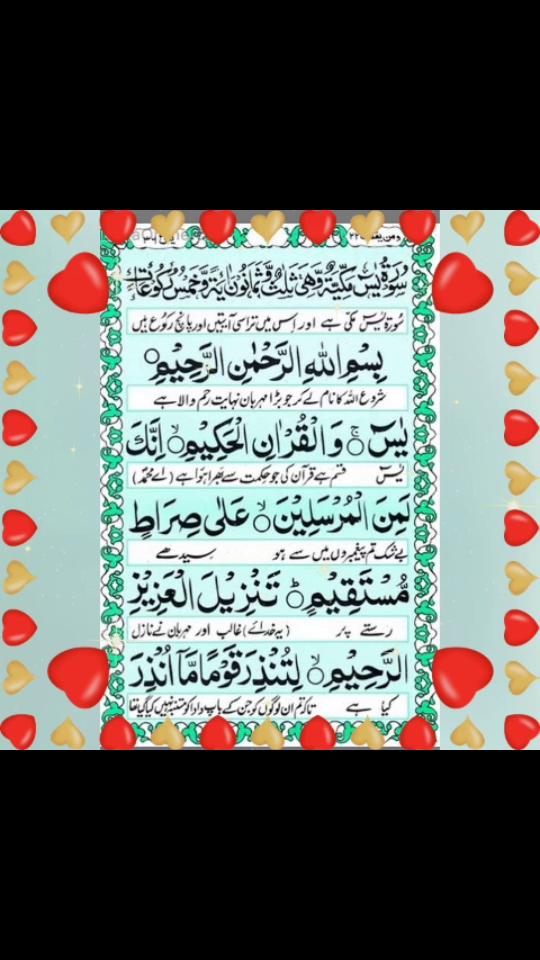 سُوْرَةُ يٰسٓ مَكِّيَّةٌ وَّهِيَ ثَلٰثٌ وَّثَمَانُوْنَ اٰيَةً وَّخَمْسُ رُكُوْعَاتٍ
سُورۂ یٰسٓ مکی ہے اور اس میں تراسی آیتیں اور پانچ رکوع ہیں
بِسْمِ اللهِ الرَّحْمٰنِ الرَّحِيْمِ
شروع اللہ کا نام لے کر جو بڑا مہربان نہایت رحم والا ہے
يٰسٓ ۚ وَالْقُرْاٰنِ الْحَكِيْمِ ۙ اِنَّكَ
یٰسٓ قسم ہے قرآن کی جو حکمت سے بھرا ہوا ہے (اے محمدؐ)
لَمِنَ الْمُرْسَلِيْنَ ۙ عَلٰى صِرَاطٍ
بے شک تم پیغمبروں میں سے ہو سیدھے
مُّسْتَقِيْمٍ ؕ تَنْزِيْلَ الْعَزِيْزِ
رستے پر (یہ خدائے) غالب اور مہربان نے نازل
الرَّحِيْمِ ۙ لِتُنْذِرَ قَوْمًا مَّاۤ اُنْذِرَ
کیا ہے تاکہ تم ان لوگوں کو جن کے باپ دادا کو متنبہ نہیں کیا گیا تھا